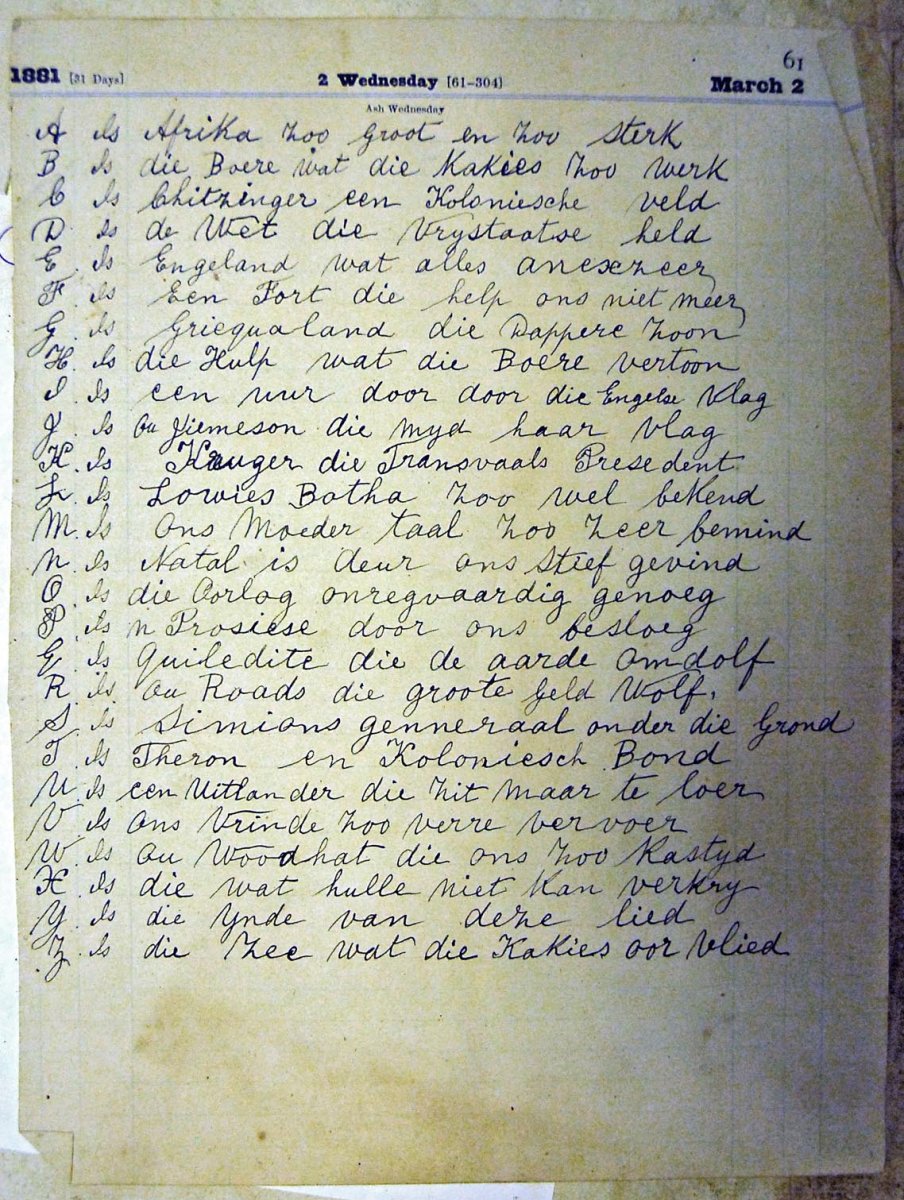 61
1881 [31 Days] 2 Wednesday [61-304] March 2
Ash Wednesday
A is Afrika zoo groot en zoo sterk
B is die Boere wat die Kakies zoo werk
C is Chitzinger een Koloniesche veld
D is de Wet die Vrystaatse held
E is Engeland wat alles anexzeer
F is Een Fort die help ons niet meer
G is Griequaland die Dappere zoon
H is die Hulp wat die Boere vertoon
I is een uur door door die Engelse vlag
J is Ou Jiemeson die myd haar vlag
K is Kruger die Transvaals Presedent
L is Lowies Botha zoo wel bekend
M is Ons Moeder taal zoo zeer bemind
N is Natal is deur ons stief gevind
O is die Oorlog onregvaardig genoeg
P is n Prosiese door ons besloeg
Q is Quiledite die de aarde omdolf
R is Ou Roads die groote Geld Wolf.
S is Simions genneraal onder die Grond
T is Theron en Koloniesch Bond
U is een Uitlander die zit maar te loer
V is Ons Vrinde zoo verre vervoer
W is Ou Woodhat die ons zoo Kastyd
X is die wat hulle niet Kan verkry
Y is die Ynde van deze lied
Z is die Zee wat die Kakies oor vlied